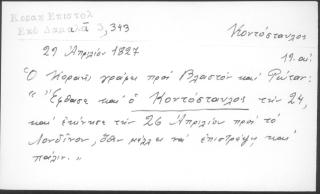 Κοραη Επιστολ
Εκδ Δαμαλά 3,343
Κοντόσταυλος
27 Ἀπριλίου 1827
19. αἰ.
Ὁ Κοραῆς γράφει πρὸς Βλαστὸν καὶ Ρώταν:
"Ἔφθασε καὶ ὁ Κοντόσταυλος τὴν 24,
καὶ ἐκίνησε τὴν 26 Ἀπριλίου πρὸς τὸ
Λονδῖνον, ὅθεν μέλλει νὰ ἐπιστρέψῃ καὶ
πάλιν."